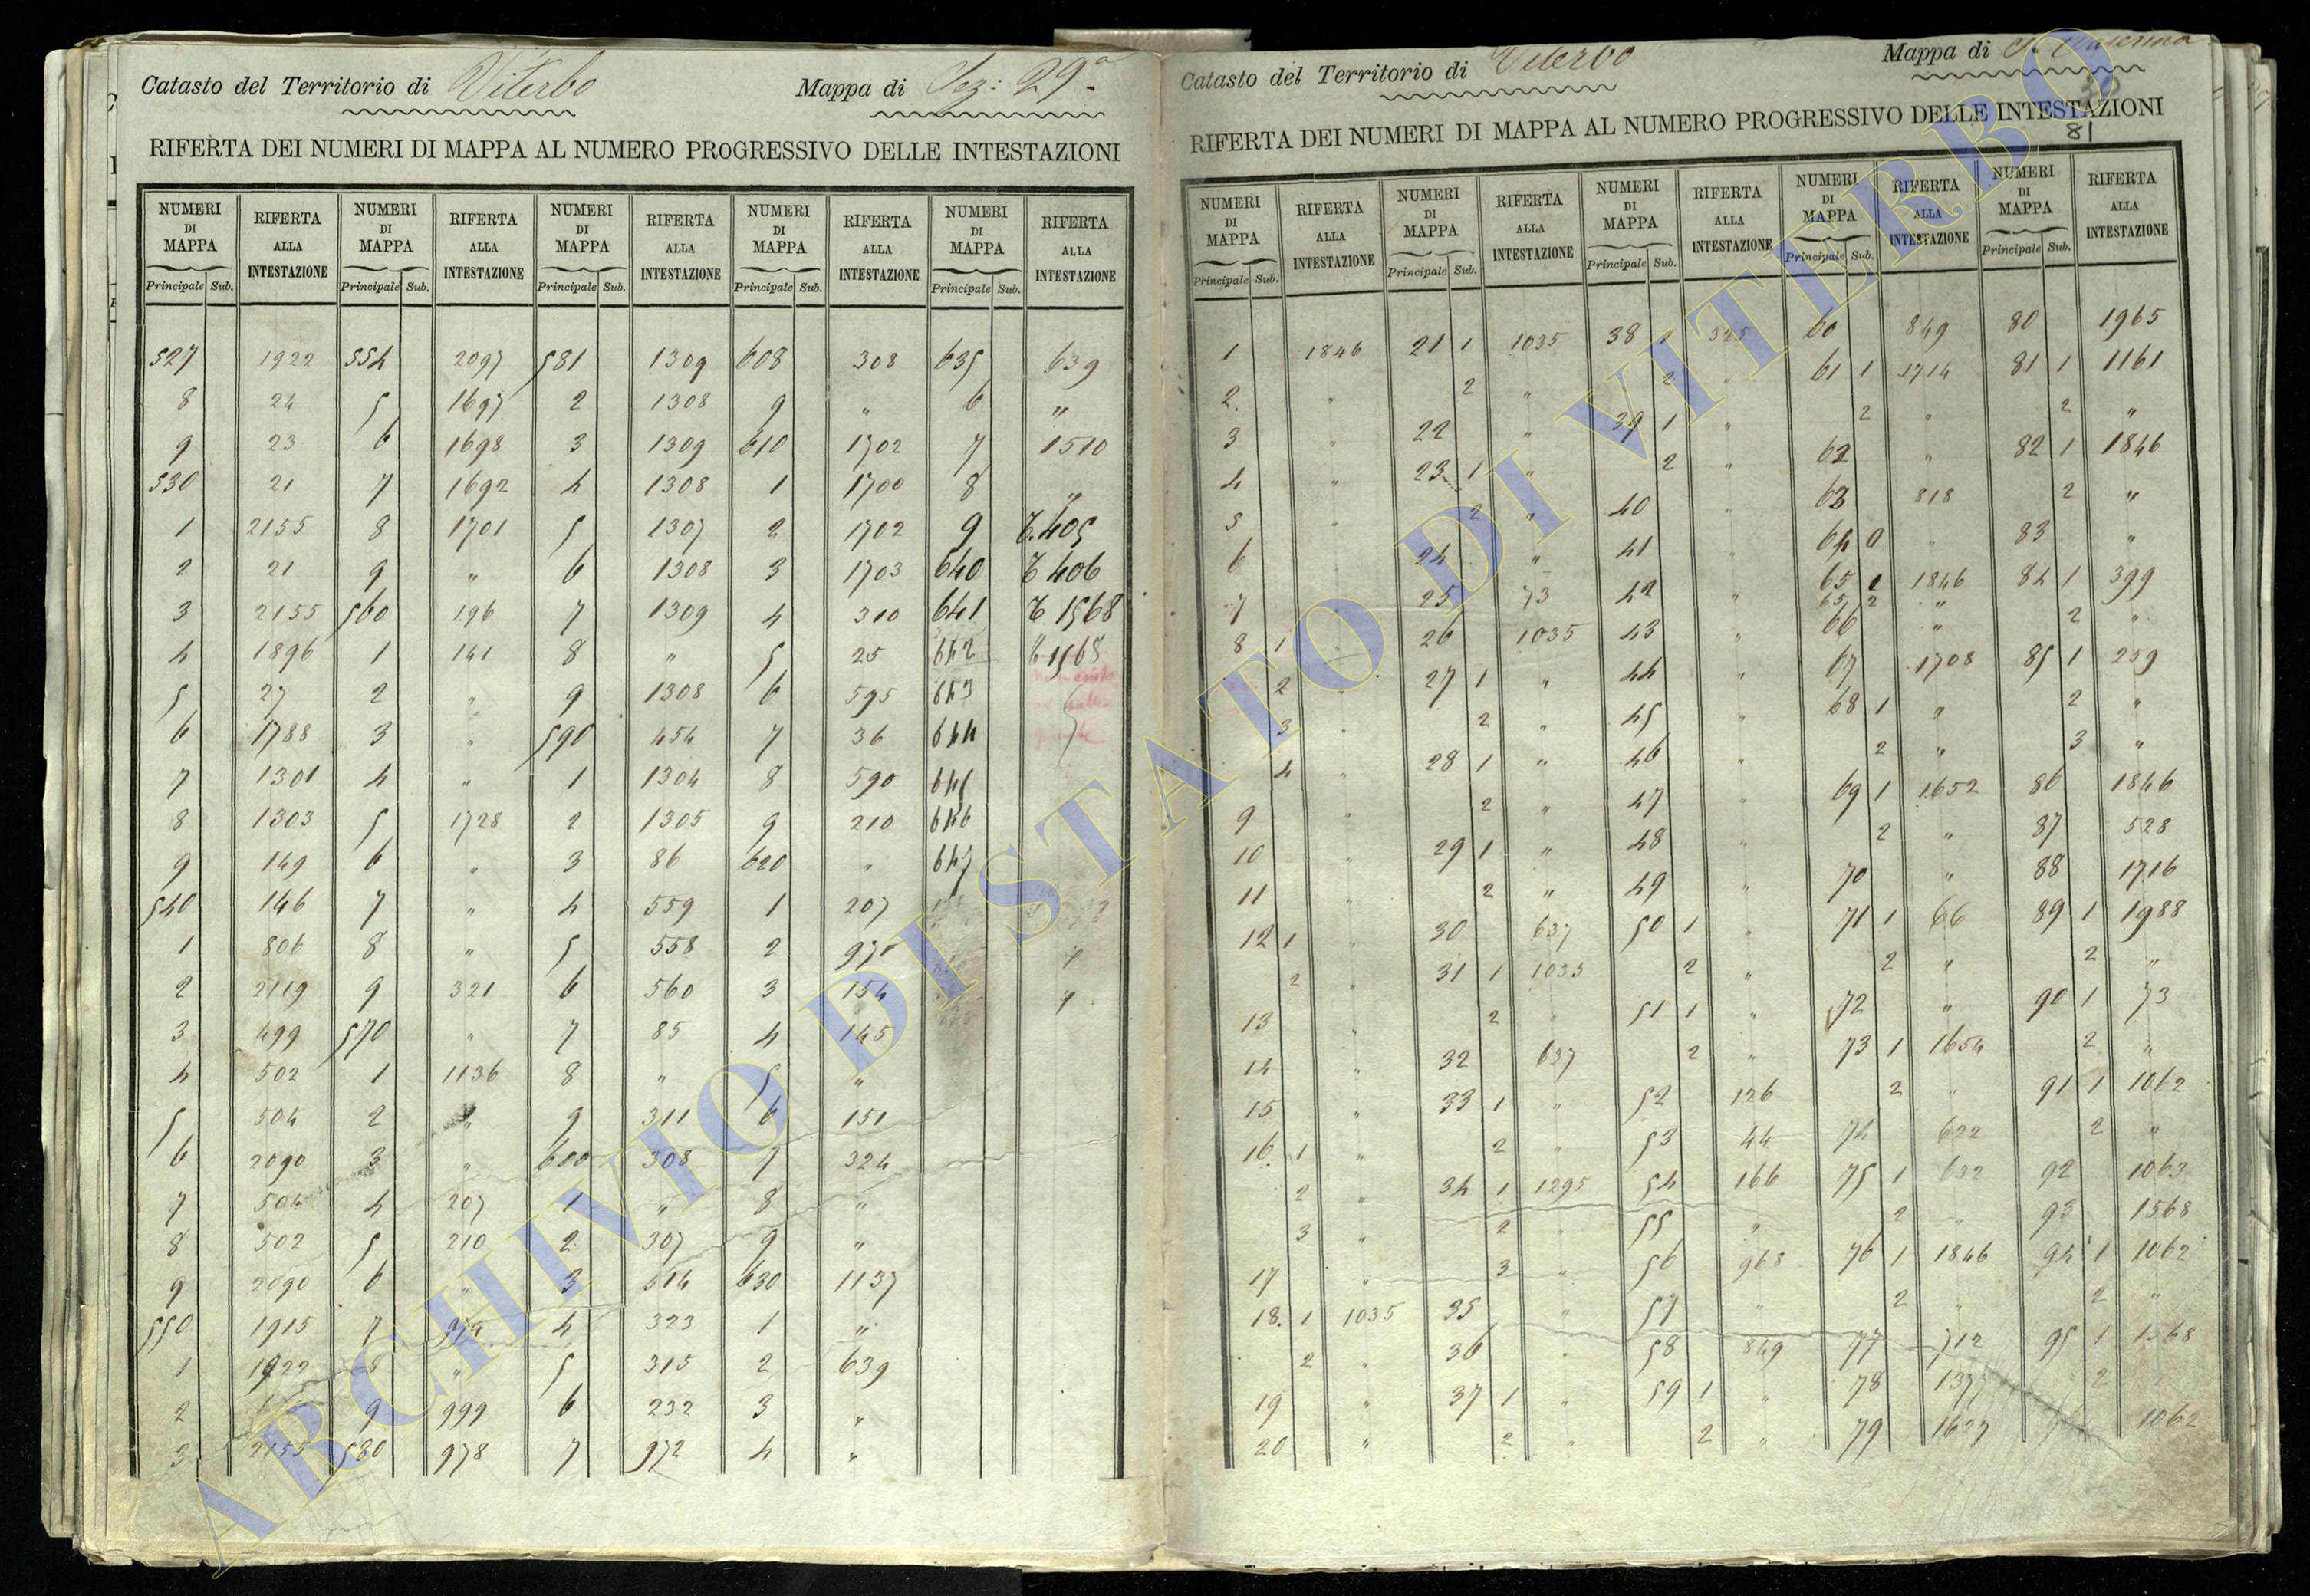 Catasto del Territorio di Viterbo Mappa di Sez: 29ª
RIFERTA DEI NUMERI DI MAPPA AL NUMERO PROGRESSIVO DELLE INTESTAZIONI
NUMERI DI MAPPA RIFERTA ALLA INTESTAZIONE NUMERI DI MAPPA RIFERTA ALLA INTESTAZIONE NUMERI DI MAPPA RIFERTA ALLA INTESTAZIONE NUMERI DI MAPPA RIFERTA ALLA INTESTAZIONE NUMERI DI MAPPA RIFERTA ALLA INTESTAZIONE
Principale Sub. Principale Sub. Principale Sub. Principale Sub. Principale Sub.
527 1922 554 2097 581 1309 608 308 635 639
8 24 5 1697 2 1308 9 " 6 "
9 23 6 1698 3 1309 610 1702 7 1510
530 21 7 1692 4 1308 1 1700 8 "
1 2155 8 1701 5 1307 2 1702 9 T. 405
2 21 9 " 6 1308 3 1703 640 T 406
3 2155 560 196 7 1309 4 310 641 T 1568
4 1896 1 141 8 " 5 25 642
5 27 2 " 9 1308 6 595 643
6 1788 3 " 590 454 7 36 644
7 1301 4 " 1 1304 8 590 645
8 1303 5 1728 2 1305 9 210 646
9 149 6 " 3 86 620 " 647
540 146 7 " 4 559 1 207
1 806 8 " 5 558 2 970
2 2119 9 321 6 560 3 154
3 499 570 " 7 85 4 145
4 502 1 1136 8 " 5 "
5 504 2 " 9 311 6 151
6 2090 3 " 600 308 7 324
7 504 4 207 1 " 8 "
8 502 5 210 2 307 9 "
9 2090 6 " 3 314 630 1137
550 1915 7 4 323 1 "
1 1922 8 " 5 315 2 639
2 9 999 6 232 3 "
3 2155 580 978 7 972 4 "
Catasto del Territorio di Viterbo Mappa di
81
RIFERTA DEI NUMERI DI MAPPA AL NUMERO PROGRESSIVO DELLE INTESTAZIONI
NUMERI DI MAPPA RIFERTA ALLA INTESTAZIONE NUMERI DI MAPPA RIFERTA ALLA INTESTAZIONE NUMERI DI MAPPA RIFERTA ALLA INTESTAZIONE NUMERI DI MAPPA RIFERTA ALLA INTESTAZIONE NUMERI DI MAPPA RIFERTA ALLA INTESTAZIONE
Principale Sub. Principale Sub. Principale Sub. Principale Sub. Principale Sub.
1 1846 21 1 1035 38 1 325 60 849 80 1965
2 " 2 " 2 " 61 1 1714 81 1 1161
3 " 22 " 39 1 " 2 " 2 "
4 " 23 1 " 2 " 62 " 82 1 1846
5 " 2 " 40 " 63 818 2 "
6 24 " 41 " 64 " 83 "
7 25 73 42 " 65 1 1846 84 1 399
65 2 "
8 1 26 1035 43 " 66 " 2 "
2 27 1 " 44 " 67 1708 85 1 259
3 " 2 " 45 " 68 1 " 2 "
4 " 28 1 " 46 " 2 " 3 "
9 " 2 " 47 " 69 1 1652 86 1846
10 " 29 1 " 48 " 2 " 87 528
11 " 2 " 49 " 70 " 88 1716
12 1 " 30 637 50 1 " 71 1 66 89 1 1988
2 " 31 1 1035 2 " 2 " 2 "
13 " 2 " 51 1 " 72 " 90 1 73
14 " 32 637 2 " 73 1 1654 2 "
15 " 33 1 " 52 126 2 " 91 1 1062
16 1 " 2 " 53 44 74 622 2 "
2 " 34 1 1295 54 166 75 1 632 92 1063
3 " 2 " 55 " 2 " 93 1568
17 " 3 " 56 968 76 1 1846 94 1 1062
18 1 1035 35 " 57 " 2 " 2 "
2 " 36 " 58 849 77 712 95 1 1568
19 " 37 1 " 59 1 " 78 2
20 " 2 " 2 " 79 1627 1062
ARCHIVIO DI STATO DI VITERBO